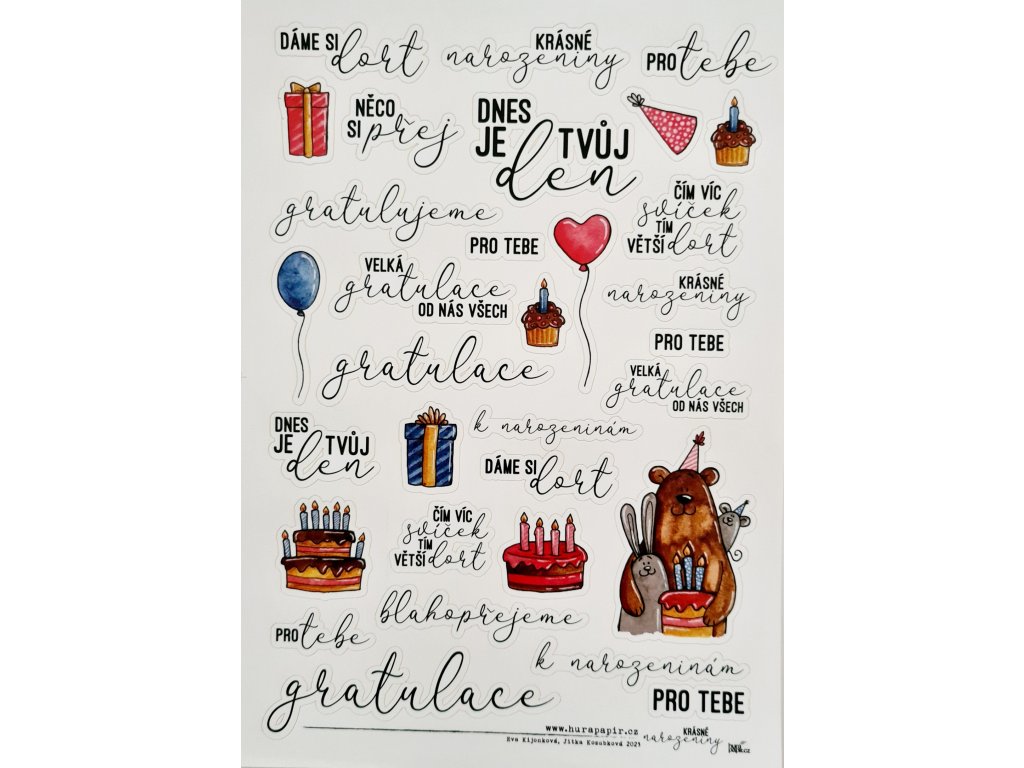 DÁME SI dort
KRÁSNÉ
narozeniny
PRO tebe
NĚCO
SI přej
DNES
JE TVŮJ
den
gratulujeme
ČÍM VÍC
svíček
TÍM
VĚTŠÍ dort
PRO TEBE
VELKÁ
gratulace
OD NÁS VŠECH
KRÁSNÉ
narozeniny
PRO TEBE
gratulace
VELKÁ
gratulace
OD NÁS VŠECH
DNES
JE TVŮJ
den
k narozeninám
DÁME SI dort
ČÍM VÍC
svíček
TÍM
VĚTŠÍ dort
blahopřejeme
PRO tebe
k narozeninám
gratulace
PRO TEBE
www.hurapapir.cz
Eva Kijonková, Jitka Kosubková 2023
KRÁSNÉ
narozeniny